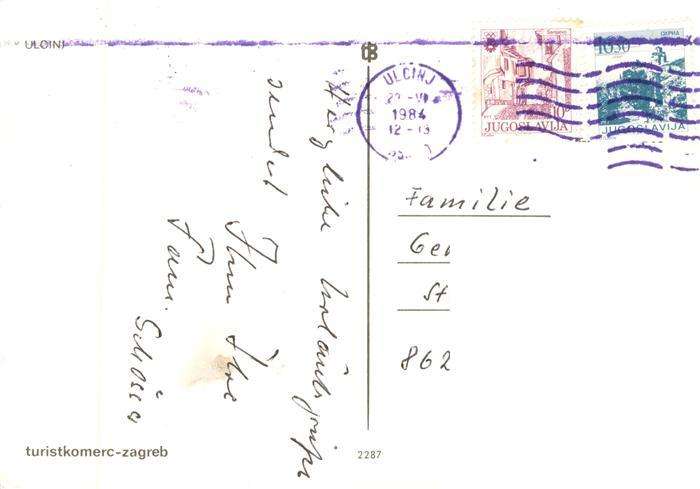 ULCINJ
Herzliche Urlaubsgrüße
sendet
Ihnen Ihre
Fam.
turistkomerc-zagreb
2287
ULCINJ
1984
12-13
JUGOSLAVIJA
1650
JUGOSLAVIJA
Familie
Ger
St
862